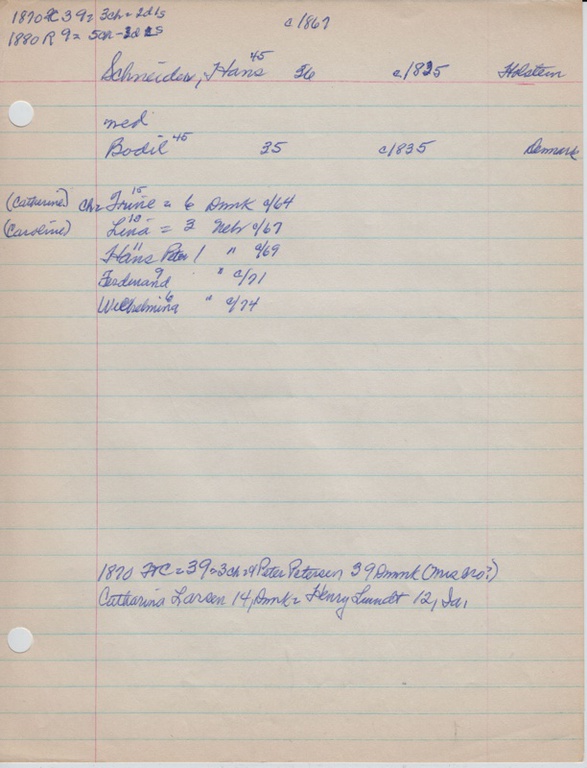 39 = 3ch = 2d1s
c1867
1880 R 9 = 5ch -
Schneider, Hans 45 c/8 Holstein
med
Bodil 45 35 c/835 Denmark
(Catharine) ch = Trine 15 = 6 Dmnk c/64
(Caroline) Lina = 3 Nebr c/67
Hans Peter 11 1 " c/69
Ferdinand 9 " c/71
Wilhelmina 6 " c/74
1870 = 39 = 3ch = Peter Petersen 39 Dmnk (mis)
Catharina Larsen 14, Dmnk = Henry Lundt 12, Ia,